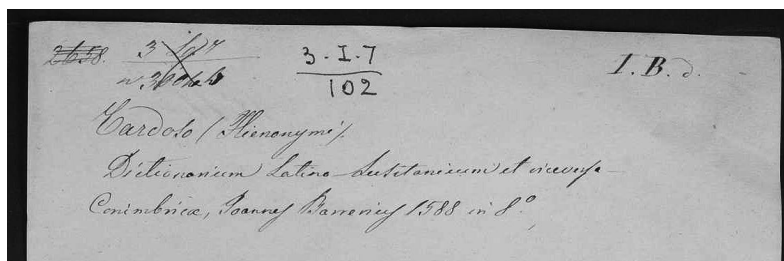 2658. 3 3.I.7 I.B.d.
102
Cardoso (Hieronymi).
Dictionarium Latino-Lusitanicum et viceversa-
Conimbricæ, Joannes Barrerius 1588 in 8.º